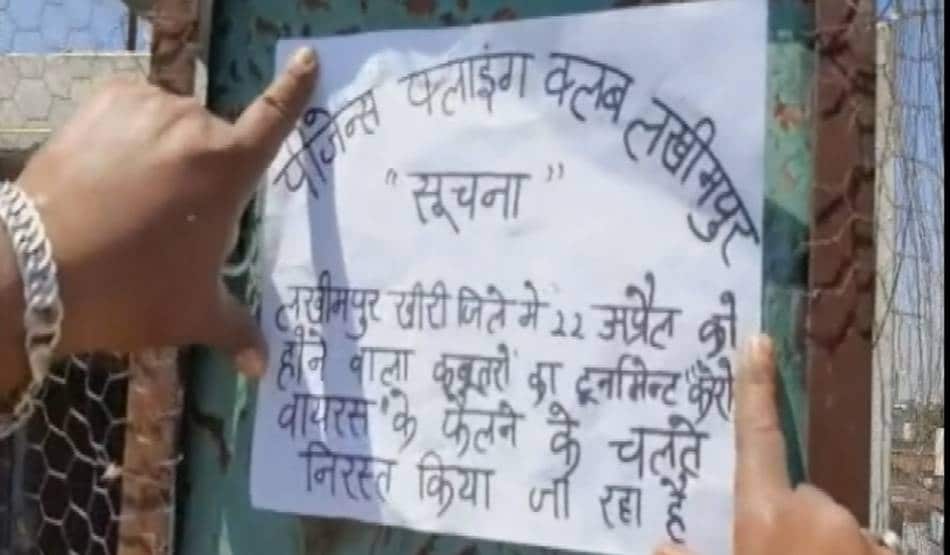 पीजेन्स फ्लाइंग क्लब लखीमपुर
"सूचना"
लखीमपुर खीरी जिले में 22 अप्रैल को
होने वाला कबूतरों का टूर्नामेन्ट "कैरो
वायरस" के फैलने के चलते
निरस्त किया जा रहा है